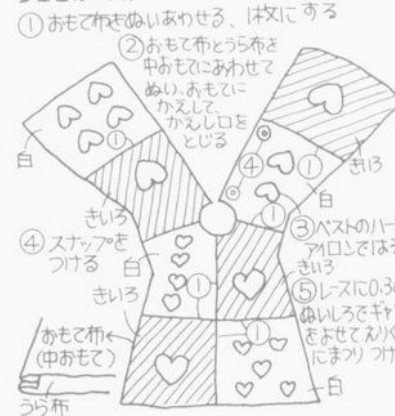 ① おもて布をぬいあわせる、1枚にする
② おもて布とうら布を
中おもてにあわせて
ぬい、おもてに
かえして、
かえし口を
とじる
①
白
きいろ
④
①
白
きいろ
①
④ スナップを
つける
白
③ ベストのハート
アイロンではる
きいろ
きいろ
①
⑤ レースに0.3
ぬいしろでギャ
をよせてえりぐ
にまつりつけ
おもて布
(中おもて)
うら布
①
白